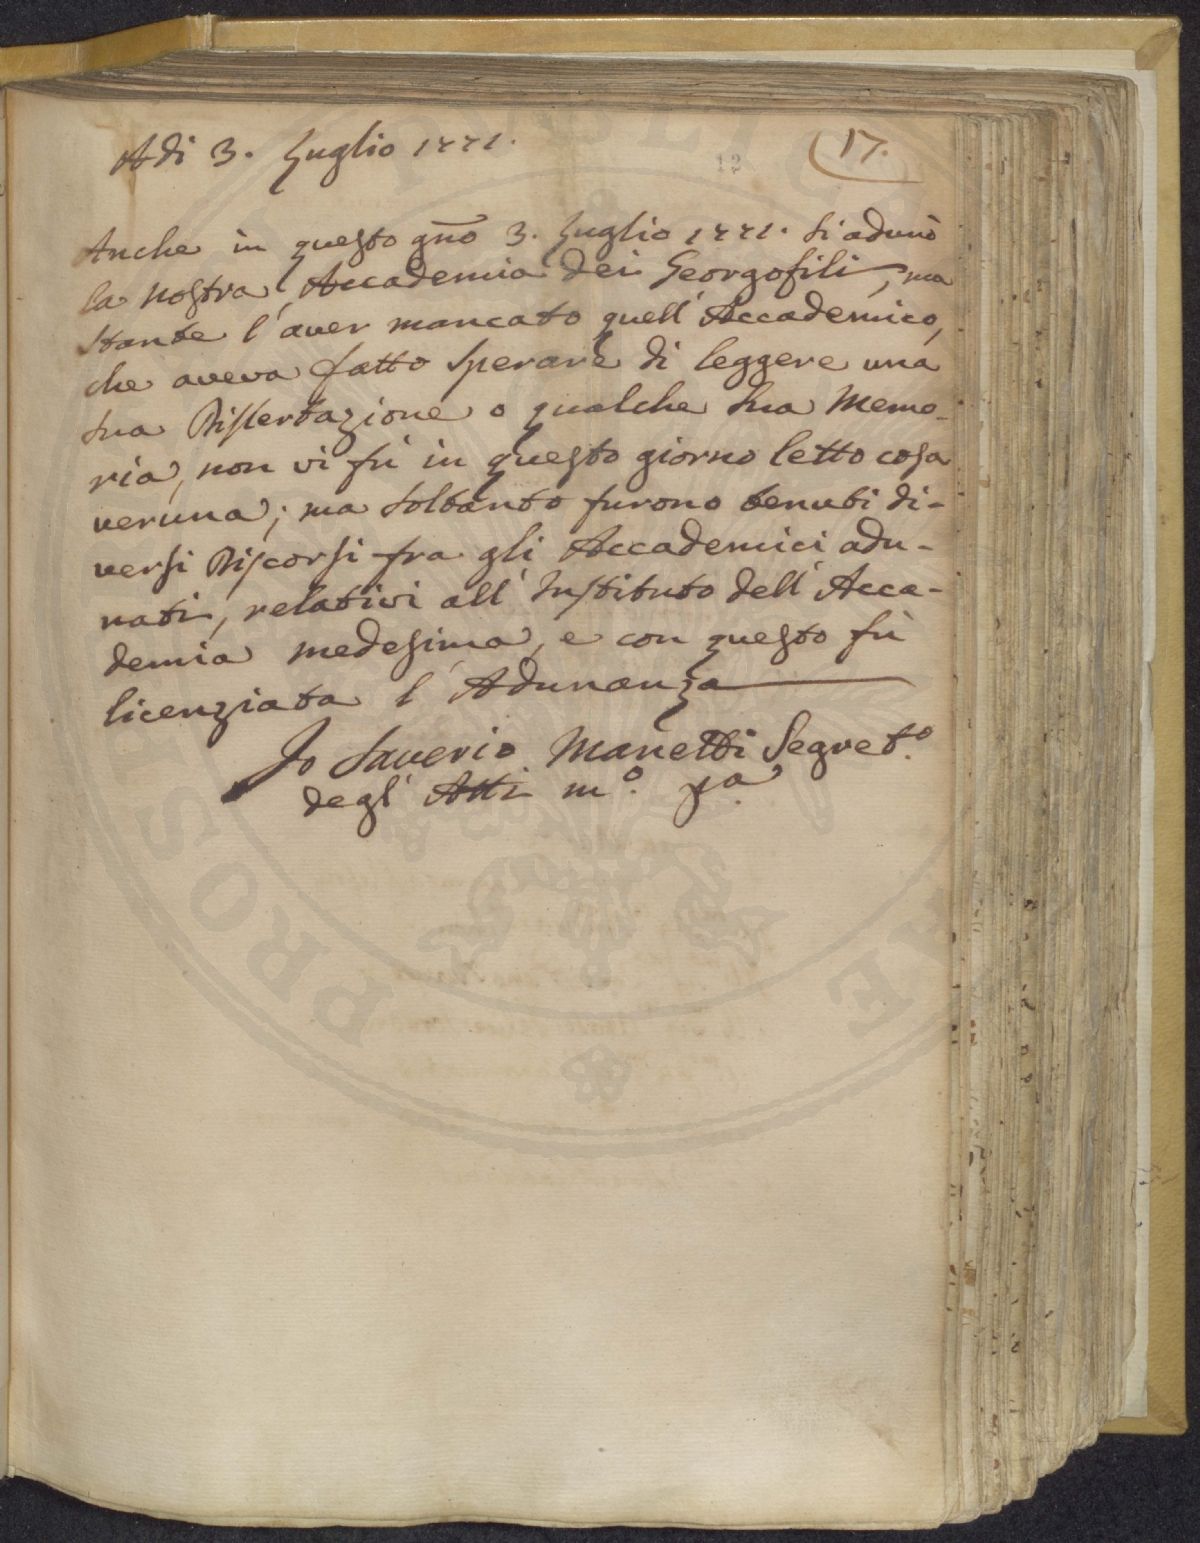 Adi 3. Luglio 1771.
12
17.
Anche in questo gno 3. Luglio 1771. si adunò
la nostra Accademia dei Georgofili, ma
stante l'aver mancato quell'Accademico,
che aveva fatto sperare di leggere una
sua Dissertazione o qualche sua Memo-
ria, non vi fù in questo giorno letto cosa
veruna; ma soltanto furono tenuti di-
versi Discorsi fra gli Accademici adu-
nati, relativi all'Instituto dell'Acca-
demia medesima, e con questo fù
licenziata l'Adunanza
Io Saverio Manetti Segret.o
degl'Atti m.o p.a
PROS